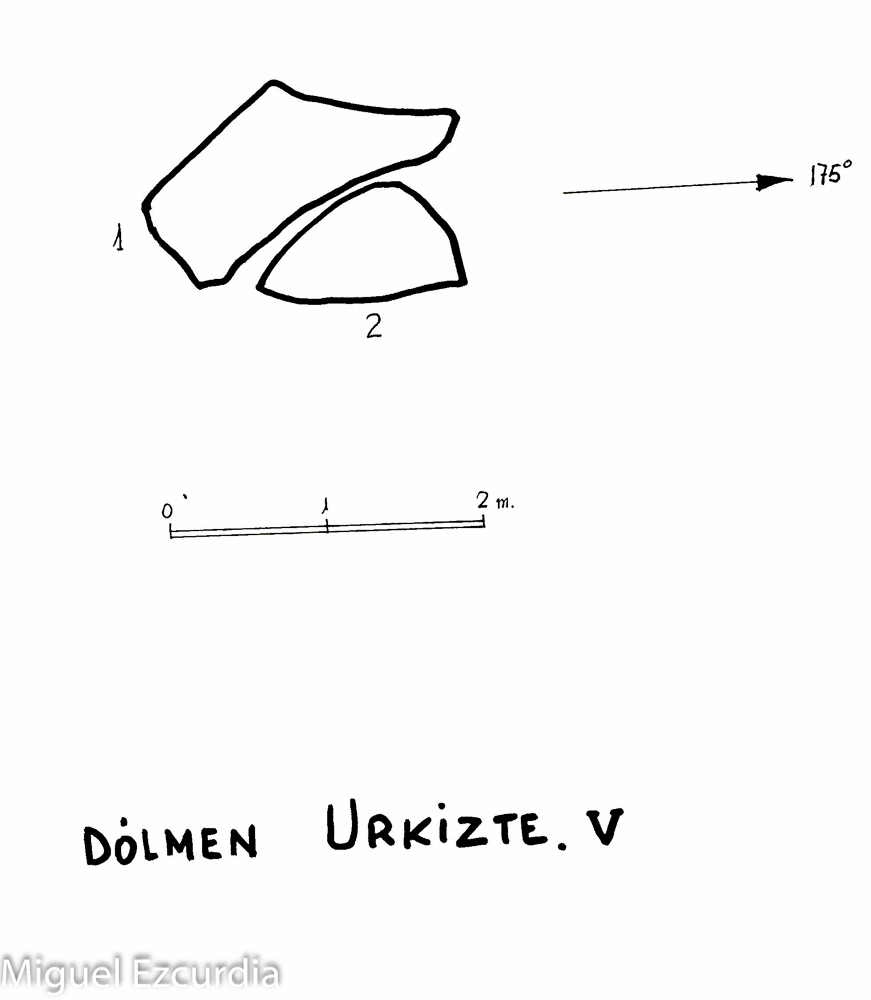 175°
1
2
0 1 2 m.
DÓLMEN URKIZTE. V
Miguel Ezcurdia